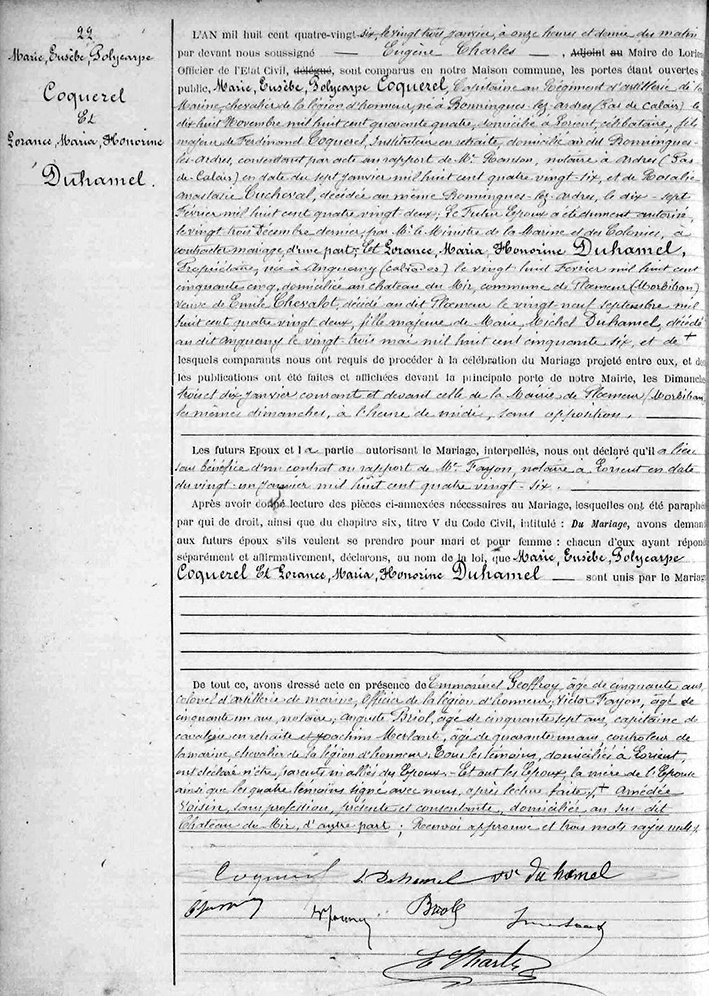 22
Marie, Eusèbe, Polycarpe
Coquerel
Et
Lorance, Maria, Honorine
Duhamel.
L'AN mil huit cent quatre-vingt six, le vingt trois janvier, à onze heures et demie du matin
par devant nous soussigné — Eugène Charles —, Adjoint au Maire de Lorien
Officier de l'Etat Civil, délégué, sont comparus en notre Maison commune, les portes étant ouvertes a
public, Marie, Eusèbe, Polycarpe Coquerel, Capitaine au Régiment d'artillerie de la
Marine, chevalier de la légion d'honneur, né à Bonningues-lez-Ardres (Pas de Calais) le
dix huit Novembre mil huit cent quarante quatre, domicilié à Lorient, célibataire, fils
majeur de Ferdinand Coquerel, Instituteur en retraite, domicilié au dit Bonningues-
les-Ardres, consentant par acte au rapport de Me Ranson, notaire à Ardres (Pas
de-Calais) en date du sept janvier mil huit cent quatre vingt-six, et de Rosalie
Anastasie Cucheval, décédée au même Bonningues-lez-Ardres, le dix-sept
Février mil huit cent quatre vingt deux; Le Futur Epoux a été dûment autorisé,
le vingt trois Décembre dernier, par Mr le Ministre de la Marine et des Colonies, à
contracter mariage, d'une part; Et Lorance, Maria, Honorine Duhamel,
Propriétaire, née à Anguerny (Calvados) le vingt huit Février mil huit cent
cinquante cinq, domiciliée au chateau du Mir, commune de Ploemeur (Morbihan)
veuve de Emile Chevalot, décédé au dit Ploemeur le vingt neuf septembre mil
huit cent quatre vingt deux, fille majeure de Marie Michel Duhamel, décédé
au dit Anguerny le vingt-trois mai mil huit cent cinquante six, et de +
lesquels comparants nous ont requis de procéder à la célébration du Mariage projeté entre eux, et do
les publications ont été faites et affichées devant la principale porte de notre Mairie, les Dimanche
trois et dix janvier courant et devant celle de la Mairie de Ploemeur (Morbihan)
les mêmes dimanches, à l'heure de midi, sans opposition.
Les futurs Epoux et la partie autorisant le Mariage, interpellés, nous ont déclaré qu'il a lieu
sous bénéfice d'un contrat au rapport de Me Fayon, notaire à Lorient en date
du vingt-un janvier mil huit cent quatre vingt-six.
Après avoir donné lecture des pièces ci-annexées nécessaires au Mariage, lesquelles ont été paraphé
par qui de droit, ainsi que du chapitre six, titre V du Code Civil, intitulé : Du Mariage, avons demand
aux futurs époux s'ils veulent se prendre pour mari et pour femme : chacun d'eux ayant répond
séparément et affirmativement, déclarons, au nom de la loi, que Marie, Eusèbe, Polycarpe
Coquerel Et Lorance, Maria, Honorine Duhamel — sont unis par le Mariag
De tout ce, avons dressé acte en présence de Emmanuel Geoffroy, âgé de cinquante ans,
colonel d'artillerie de marine, Officier de la légion d'honneur; Victor Fayon, âgé de
cinquante un ans, notaire; Auguste Briol, âgé de cinquante sept ans, capitaine de
cavalerie en retraite et Joachim Merlant, âgé de quarante un ans, controleur de
la marine, chevalier de la légion d'honneur; Tous les témoins, domiciliés à Lorient,
ont déclaré n'être parents ni alliés des Epoux. - Et ont les Epoux, la mère de l'Epouse
ainsi que les quatre témoins signé avec nous, après lecture faite; + Amédée
Voisin, sans profession, présente et consentante, domiciliée au su dit
Chateau du Mir, d'autre part; Renvoi approuvé et trois mots rayés nuls.
Coquerel L Duhamel Vve Duhamel
Briol
E Charles